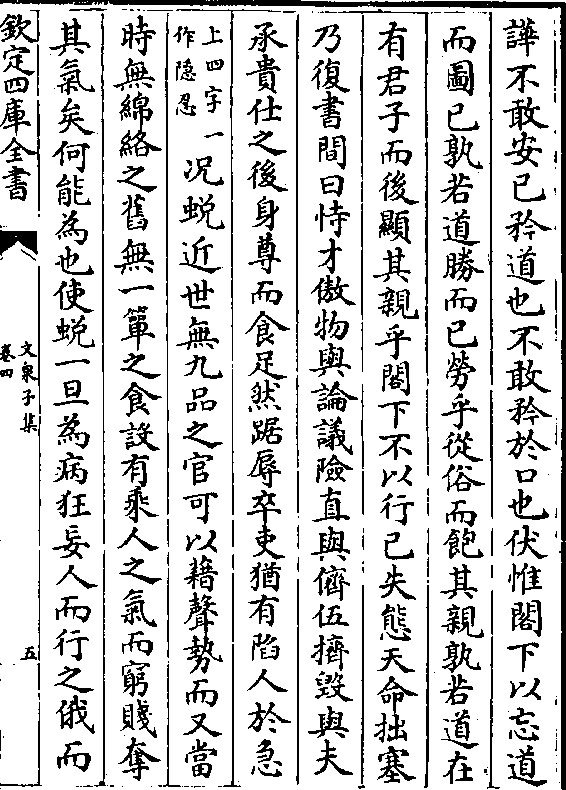 譁不敢安已矜道也不敢矜於口也伏惟閣下以忘道
而圖已孰若道勝而已勞乎從俗而飽其親孰若道在
有君子而後顯其親乎閣下不以行已失態天命拙塞
乃復書間曰恃才傲物與論議險直與儕伍擠毀與夫
承貴仕之後身尊而食足然踞辱卒吏猶有陷人於急
上四字一
作隐忍
况蜕近世無九品之官可以藉聲勢而又當
時無綿絡之舊無一簞之食設有乘人之氣而窮賤奪
其氣矣何能為也使蜕一旦為病狂妄人而行之俄而
欽定四庫全書
文泉子集
卷四
五